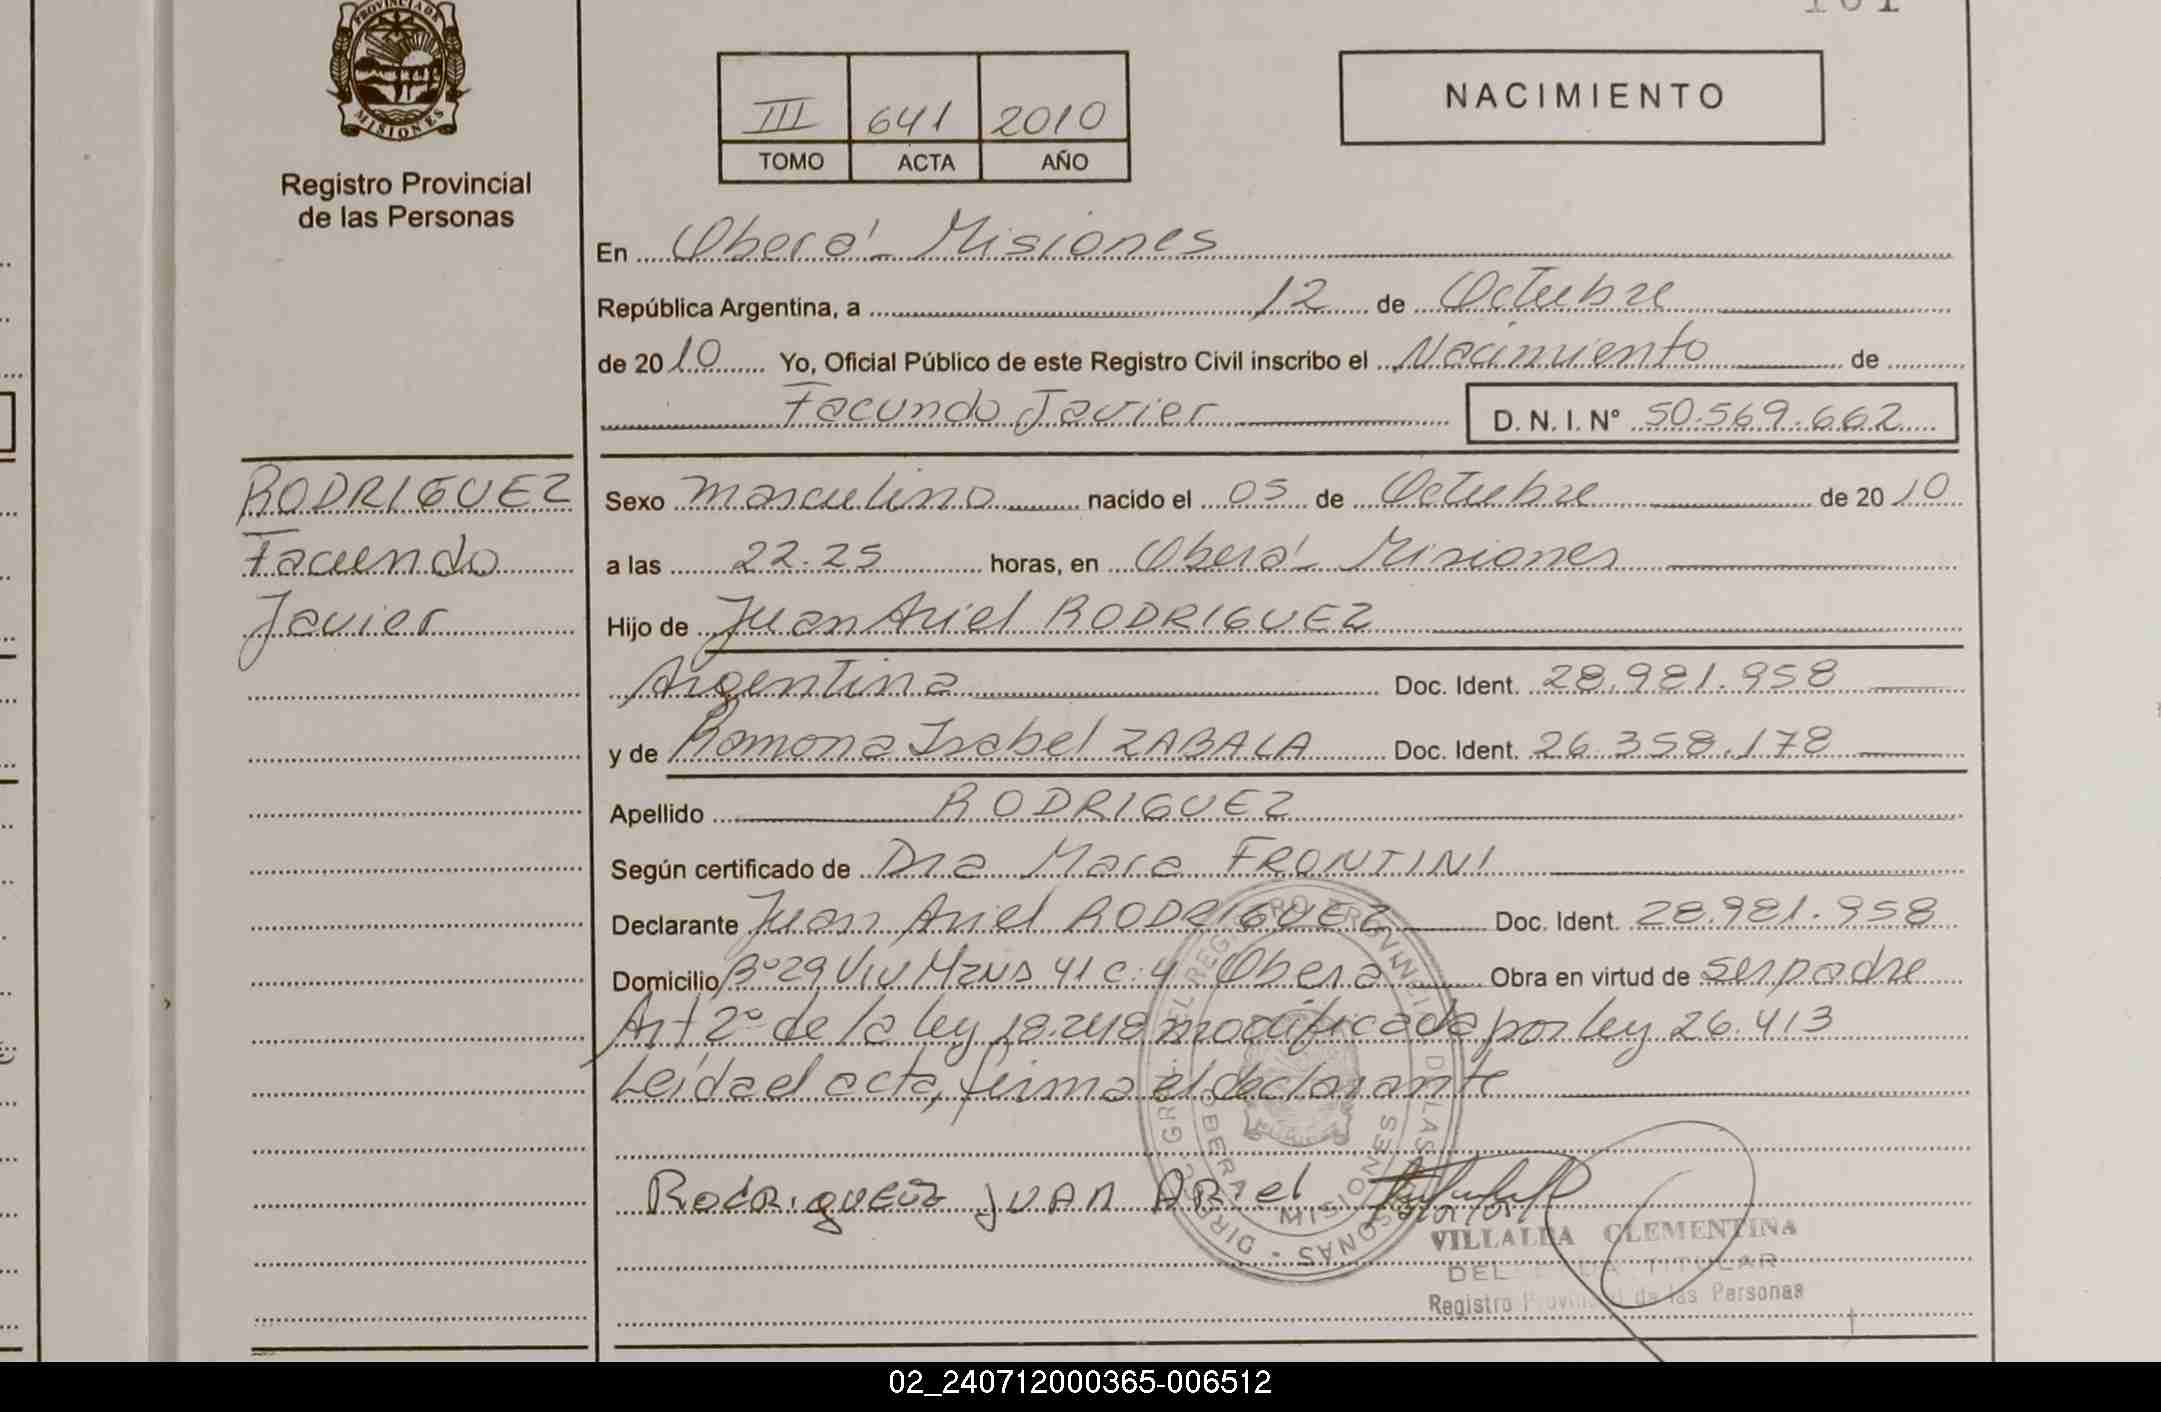 PROVINCIA DE
MISIONES
Registro Provincial
de las Personas
III 641 2010
TOMO ACTA AÑO
NACIMIENTO
En Oberá - Misiones
República Argentina, a 12 de Octubre
de 2010 Yo, Oficial Público de este Registro Civil inscribo el Nacimiento de
Facundo Javier D. N. I. N° 50.569.662
RODRIGUEZ
Facundo
Javier
Sexo masculino nacido el 05 de Octubre de 2010
a las 22.25 horas, en Oberá - Misiones
Hijo de Juan Ariel RODRIGUEZ
Argentina Doc. Ident. 28.981.958
y de Ramona Isabel ZABALA Doc. Ident. 26.358.178
Apellido RODRIGUEZ
Según certificado de Dra Mara FRONTINI
Declarante Juan Ariel RODRIGUEZ Doc. Ident. 28.981.958
Domicilio B° 29 Viv Mzna 41 c. 4 Oberá Obra en virtud de ser padre
Art 2° de la ley 18.248 modificada por ley 26.413
Leída el acta, firma el declarante
Rodriguez JUAN ARiel
VILLALBA CLEMENTINA
TITULAR
Registro Provincial de las Personas
02_240712000365-006512